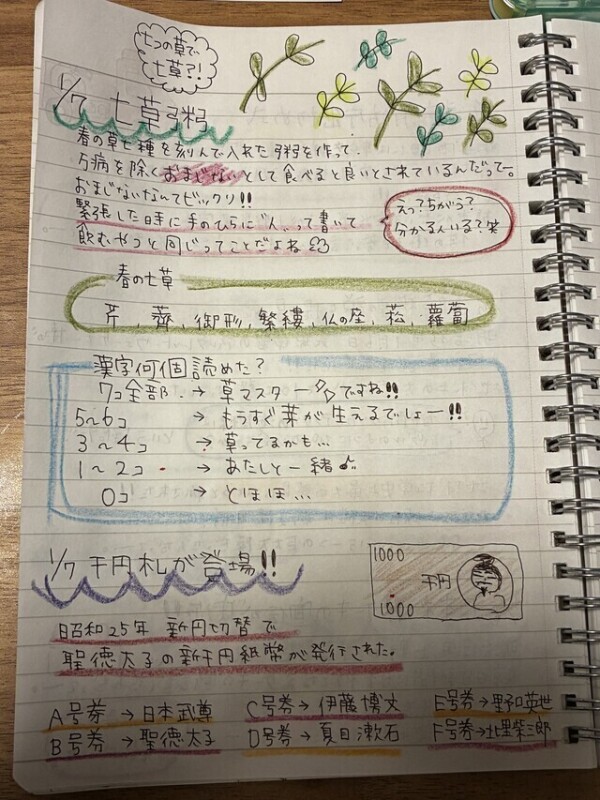 七つの草で
七草?!
1/7 七草粥
春の草七種を刻んで入れた粥を作って、
万病を除くおまじないとして食べると良いとされているんだって。
おまじないなんてビックリ!!
緊張した日時に手のひらに"人"って書いて
飲むやつと同じってことだよね
えっ?ちがう?
分かる人いる?笑
春の七草
芹、薺、御形、繁縷、仏の座、菘、蘿蔔
漢字何個読めた?
7コ全部 → 草マスターですね!!
5〜6コ → もうすぐ芽が生えるでしょー!!
3〜4コ → 草ってるかも…
1〜2コ → あたしと一緒♪
0コ → とほほ…
1/7 千円札が登場!!
1000
千円
1000
昭和25年 新円切替で
聖徳太子の新千円紙幣が発行された。
A号券→日本武尊 C号券→伊藤博文 E号券→野口英世
B号券→聖徳太子 D号券→夏目漱石 F号券→北里柴三郎